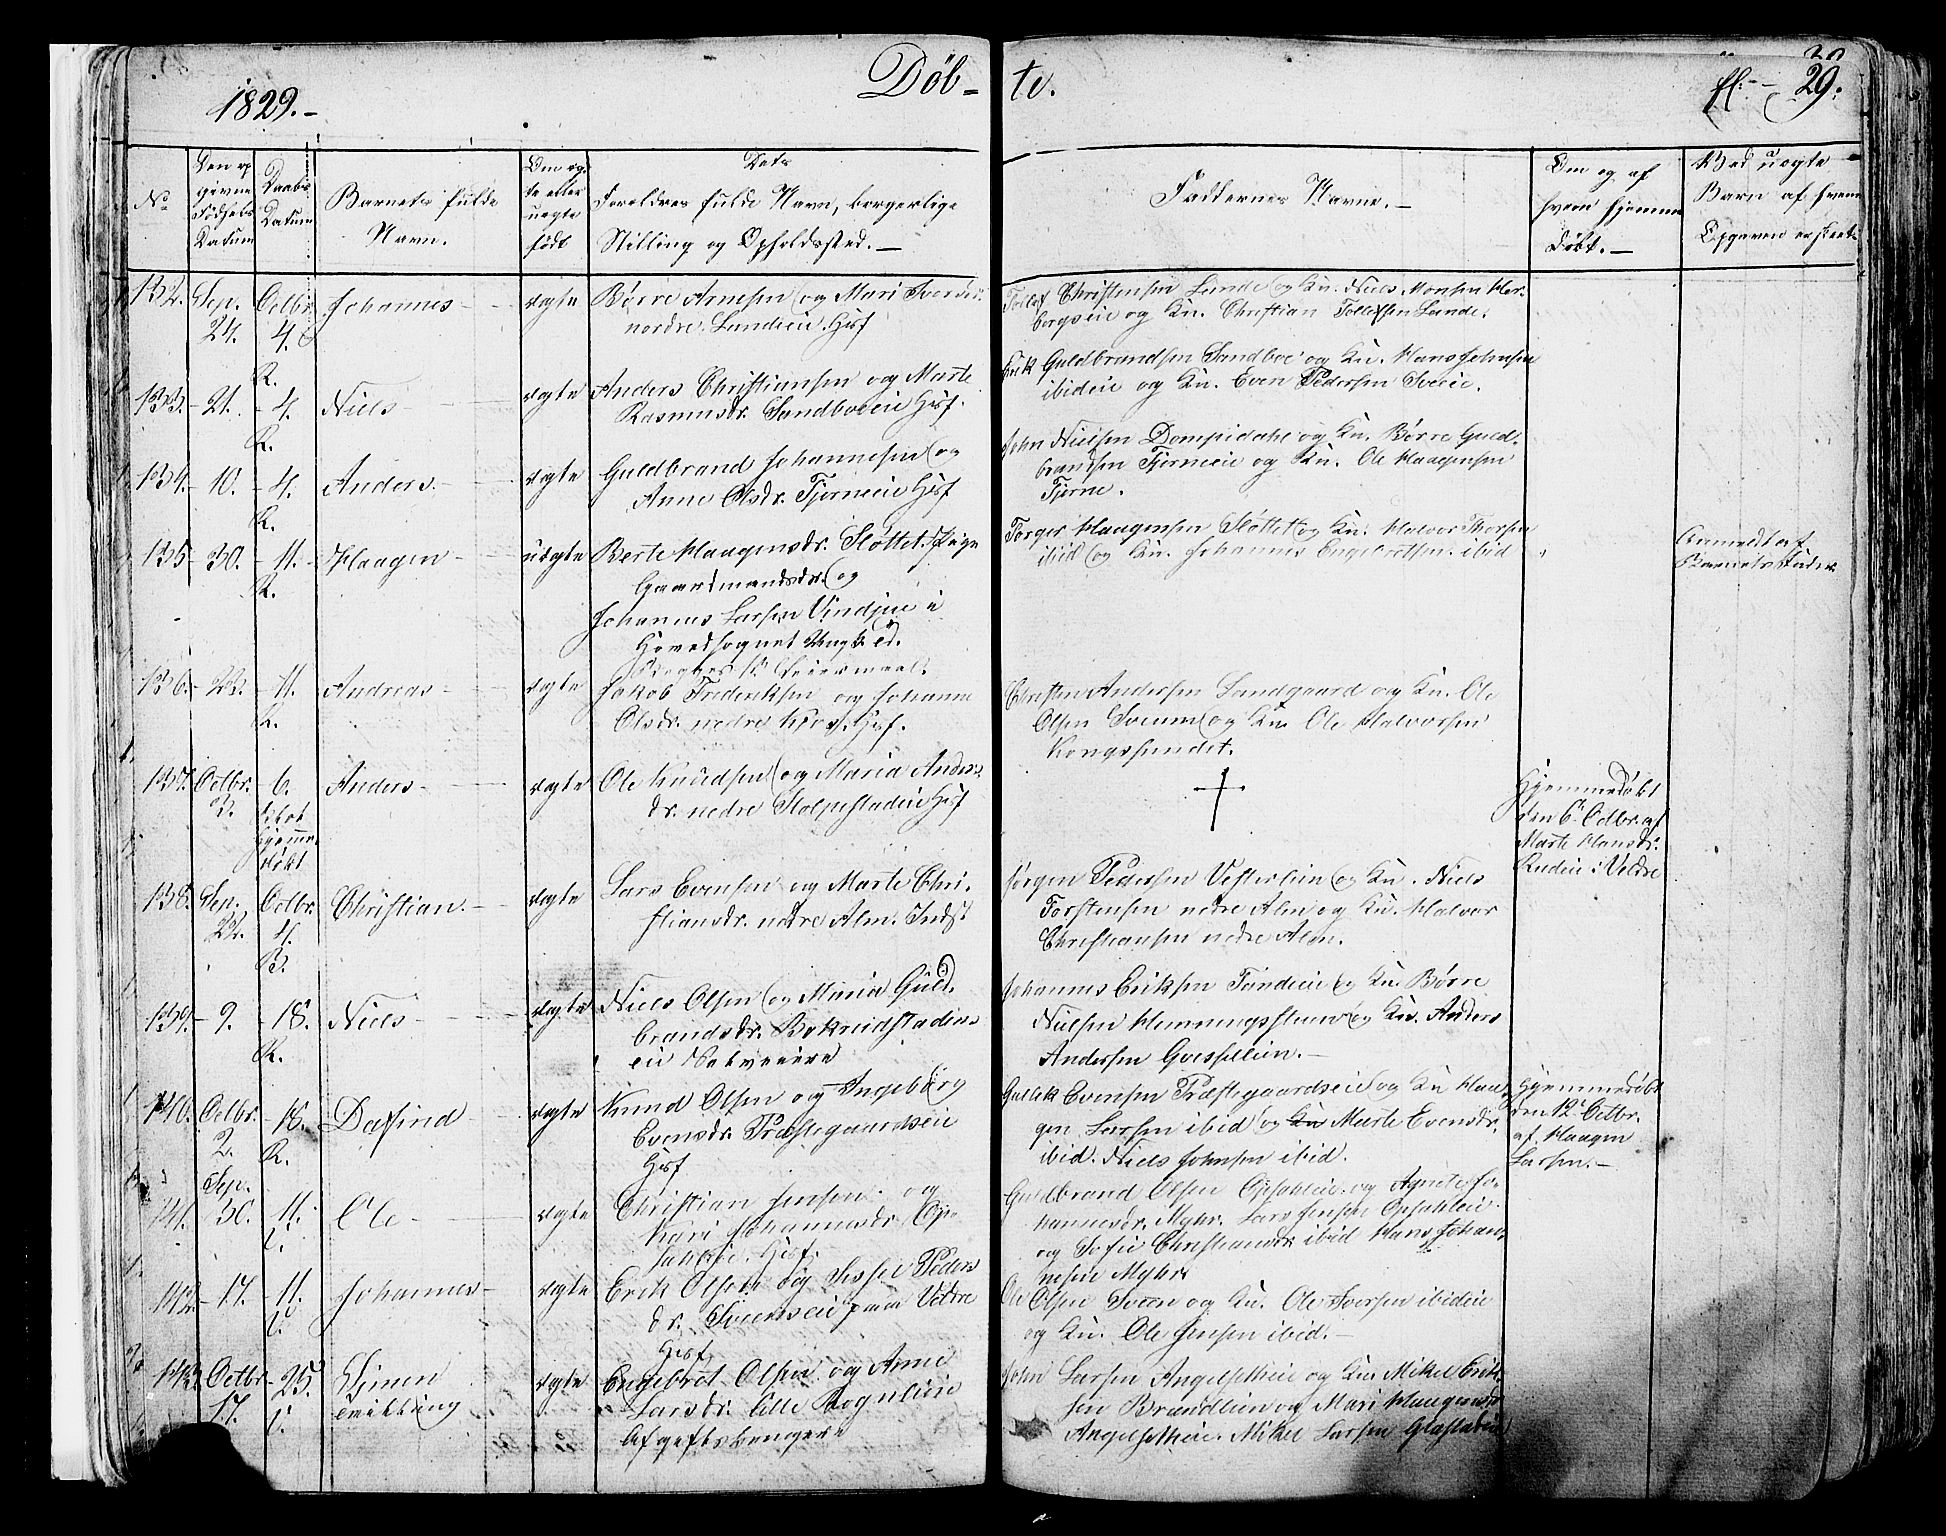 1829.-
Døb-
te.
fl:- 29.
No
Den op
givne
Fødsels
Datum
Daabs
Datum
Barnets fulde
Navn.
Om æg
te eller
uægte
født
Dets
Foreldres fulde Navn, borgerlige
Stilling og Opholdssted.-
Faddernes Navne.-
Om og af
hvem hjemme
døbt.-
Ved uægte
Barn af hvem
Opgaven er skeet.
132. Sep. Octbr. Johannes- ægte Børre Arnesen og Mari
24. 4. nordre Lundeie Hsf
R.
Christensen Lunde og Ku. Niels Monsen
og Ku. Christian Tollefsen Lunde.
133. 21. - 4. Niels- ægte Anders Christiansen og Marte
R. Rasmusdr. Sandboeeie Hsf.
Erik Guldbrandsen Sandboe og Ku. Hans Johnsen
ibideie og Ku. Even Pedersen Sveeie.
134. - 10. - 4. Anders. ægte Guldbrand Johannesen og
R. Anne Olsdr. Tjerneeie Hsf
John Nielsen Dompidahl og Ku. Børre Guld-
brandsen Tjerneeie og Ku. Ole Haagensen
Tjerne.
135 - 30. - 11. Haagen- uægte Berte Haagensdr. Sløttet. Pige
R. Gaardmandsdr. og
Johannes Larsen Vindjuu i
Hovedsognet Ungk.
Torger Haagensen Sløttet og Ku. Halvor Thorsen
ibid og Ku. Johannes Engebretsen ibid
Anmeldt af
Barnets Fader
136. - 22. - 11. Andreas- ægte Jakob Frederiksen og Johanne
R. Olsdr. nedre Hsf.
Christen Andersen Sandgaard og Ku. Ole
Olsen Sveum og Ku. Ole Halvorsen
Kongssundet.
137. Octbr. 6. Anders- ægte Ole Knudsen og Maria Anders-
2. dr. nedre Stolpestadeie Hsf
hjemme-
døbt
Hjemmedøbt
den 6t Octbr. af
Marte Hansdr.
Rudeie i Veldre
138. Sep. Octbr. Christian.- ægte Lars Evensen og Marte Chri-
22. 4. stiansdr. nedre Alm. Indst
B.
Jørgen Pedersen Vesterlien og Ku. Niels
Torstensen nedre Alm og Ku. Halvor
Christiansen nedre Alm.
139. - 9. - 18. Niels- ægte Niels Olsen og Maria Guld-
R. brandsdr.
eie
Johannes Eriksen Tandeeie og Ku. Børre
Nielsen og Ku. Anders
Andersen Gvesselien.-
140. Octbr. - 18. Dafind ægte Knud Olsen og Angebørg
2. R. Evensdr. Præstegaardseie
Hsf
Gullek Evensen Præstegaardseie og Ku Haa-
gen Larsen ibid og Ku Marte Evensdr.
ibid. Niels Johnsen ibid.
Hjemmedøbt
den 12t Octbr.
af Haagen
Larsen.-
Sep.
141. 30. 11. Ole- ægte Christian Jensen og
Kari Johannesdr. Op-
sahleie. Hsf.
Guldbrand Olsen Opsahleie og Agnete Jo-
hannesdr. Myhr. Lars Jensen Opsahleie
og Sofie Christiansdr ibid Hans Johan-
nesen Myhr.
142. - 17. 11. Johannes- ægte Erik Olsen og Sissel Peders
dr. Sveenseie paa Veldre
Hsf
Ole Olsen Sveen og Ku. Ole Iversen ibideie
og Ku. Ole Jensen ibid.-
143. Octbr - 25. Simen ægte Engebret Olsen og Anne
17. Tvilling Larsdr. Lille Rognlieie
Afgiftsbrugere
John Larsen og Ku. Mikel Erik-
sen Brandlien og Mari Haagensdr
Mikel Larsen